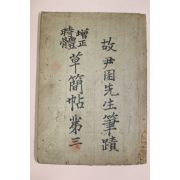 故尹先生筆蹟
增正
時體
草簡帖第三